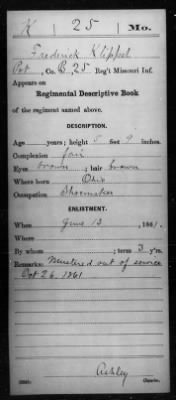 K 25 Mo.
Frederick Klippel
Pvt, Co. B, 25 Reg't Missouri Inf.
Appears on
Regimental Descriptive Book
of the regiment named above.
DESCRIPTION.
Age years; height 5 feet 9 inches.
Complexion fair
Eyes brown ; hair brown
Where born Ohio
Occupation Shoemaker
ENLISTMENT.
When June 13 , 1861.
Where
By whom ; term 3 y'rs.
Remarks: Mustered out of service
Oct 26, 1861
Ashley
Copyist.